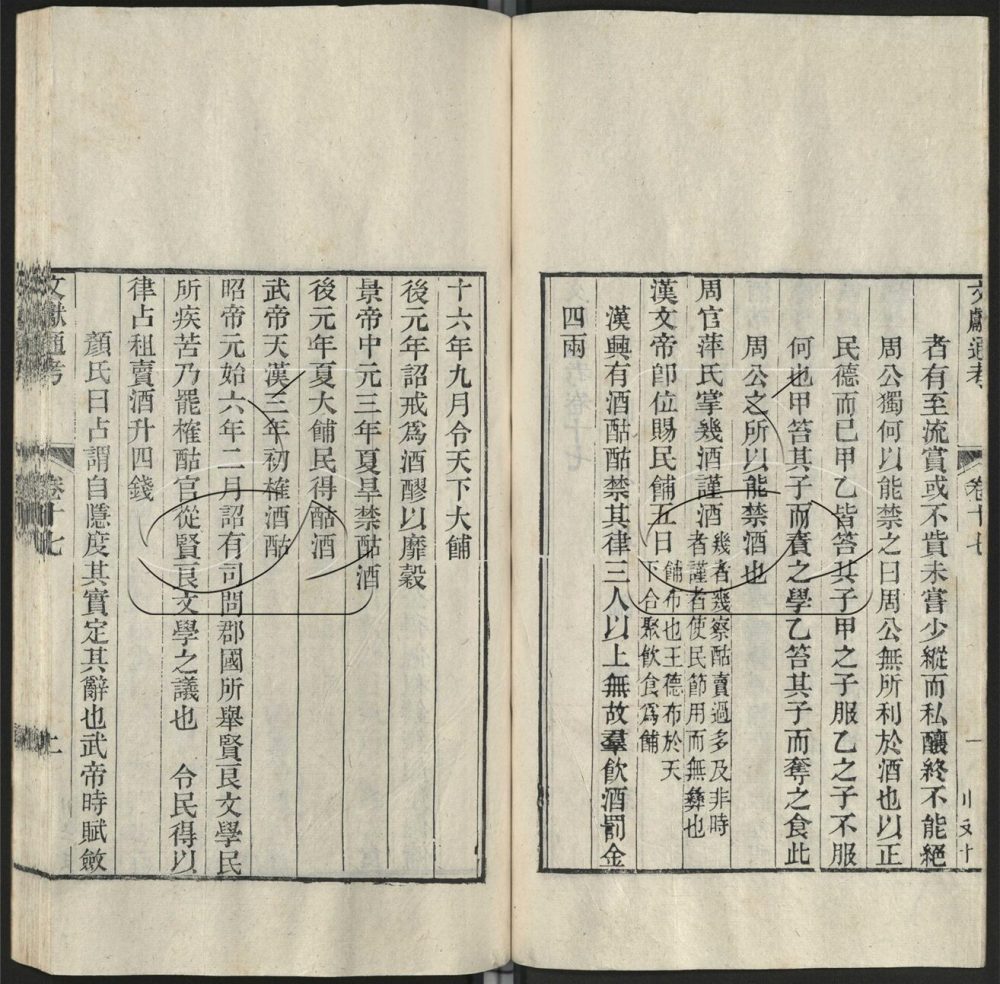 文獻通考 卷十七 一
者有至流賞或不貲未嘗少縱而私釀終不能絕
周公獨何以能禁之曰周公無所利於酒也以正
民德而已甲乙皆笞其子甲之子服乙之子不服
何也甲笞其子而責之學乙笞其子而奪之食此
周公之所以能禁酒也
周官萍氏掌幾酒謹酒
幾者幾察酤賣過多及非時
者謹者使民節用而無彝也
漢文帝卽位賜民餔五日
餔布也王德布於天
下合聚飲食爲餔
漢興有酒酤禁其律三人以上無故羣飲酒罰金
四兩
十六年九月令天下大餔
後元年詔戒爲酒醪以靡穀
景帝中元三年夏旱禁酤酒
後元年夏大餔民得酤酒
武帝天漢三年初榷酒酤
昭帝元始六年二月詔有司問郡國所舉賢良文學民
所疾苦乃罷榷酤官從賢良文學之議也 令民得以
律占租賣酒升四錢
顏氏曰占謂自隱度其實定其辭也武帝時賦斂
文獻通考 卷十七 二